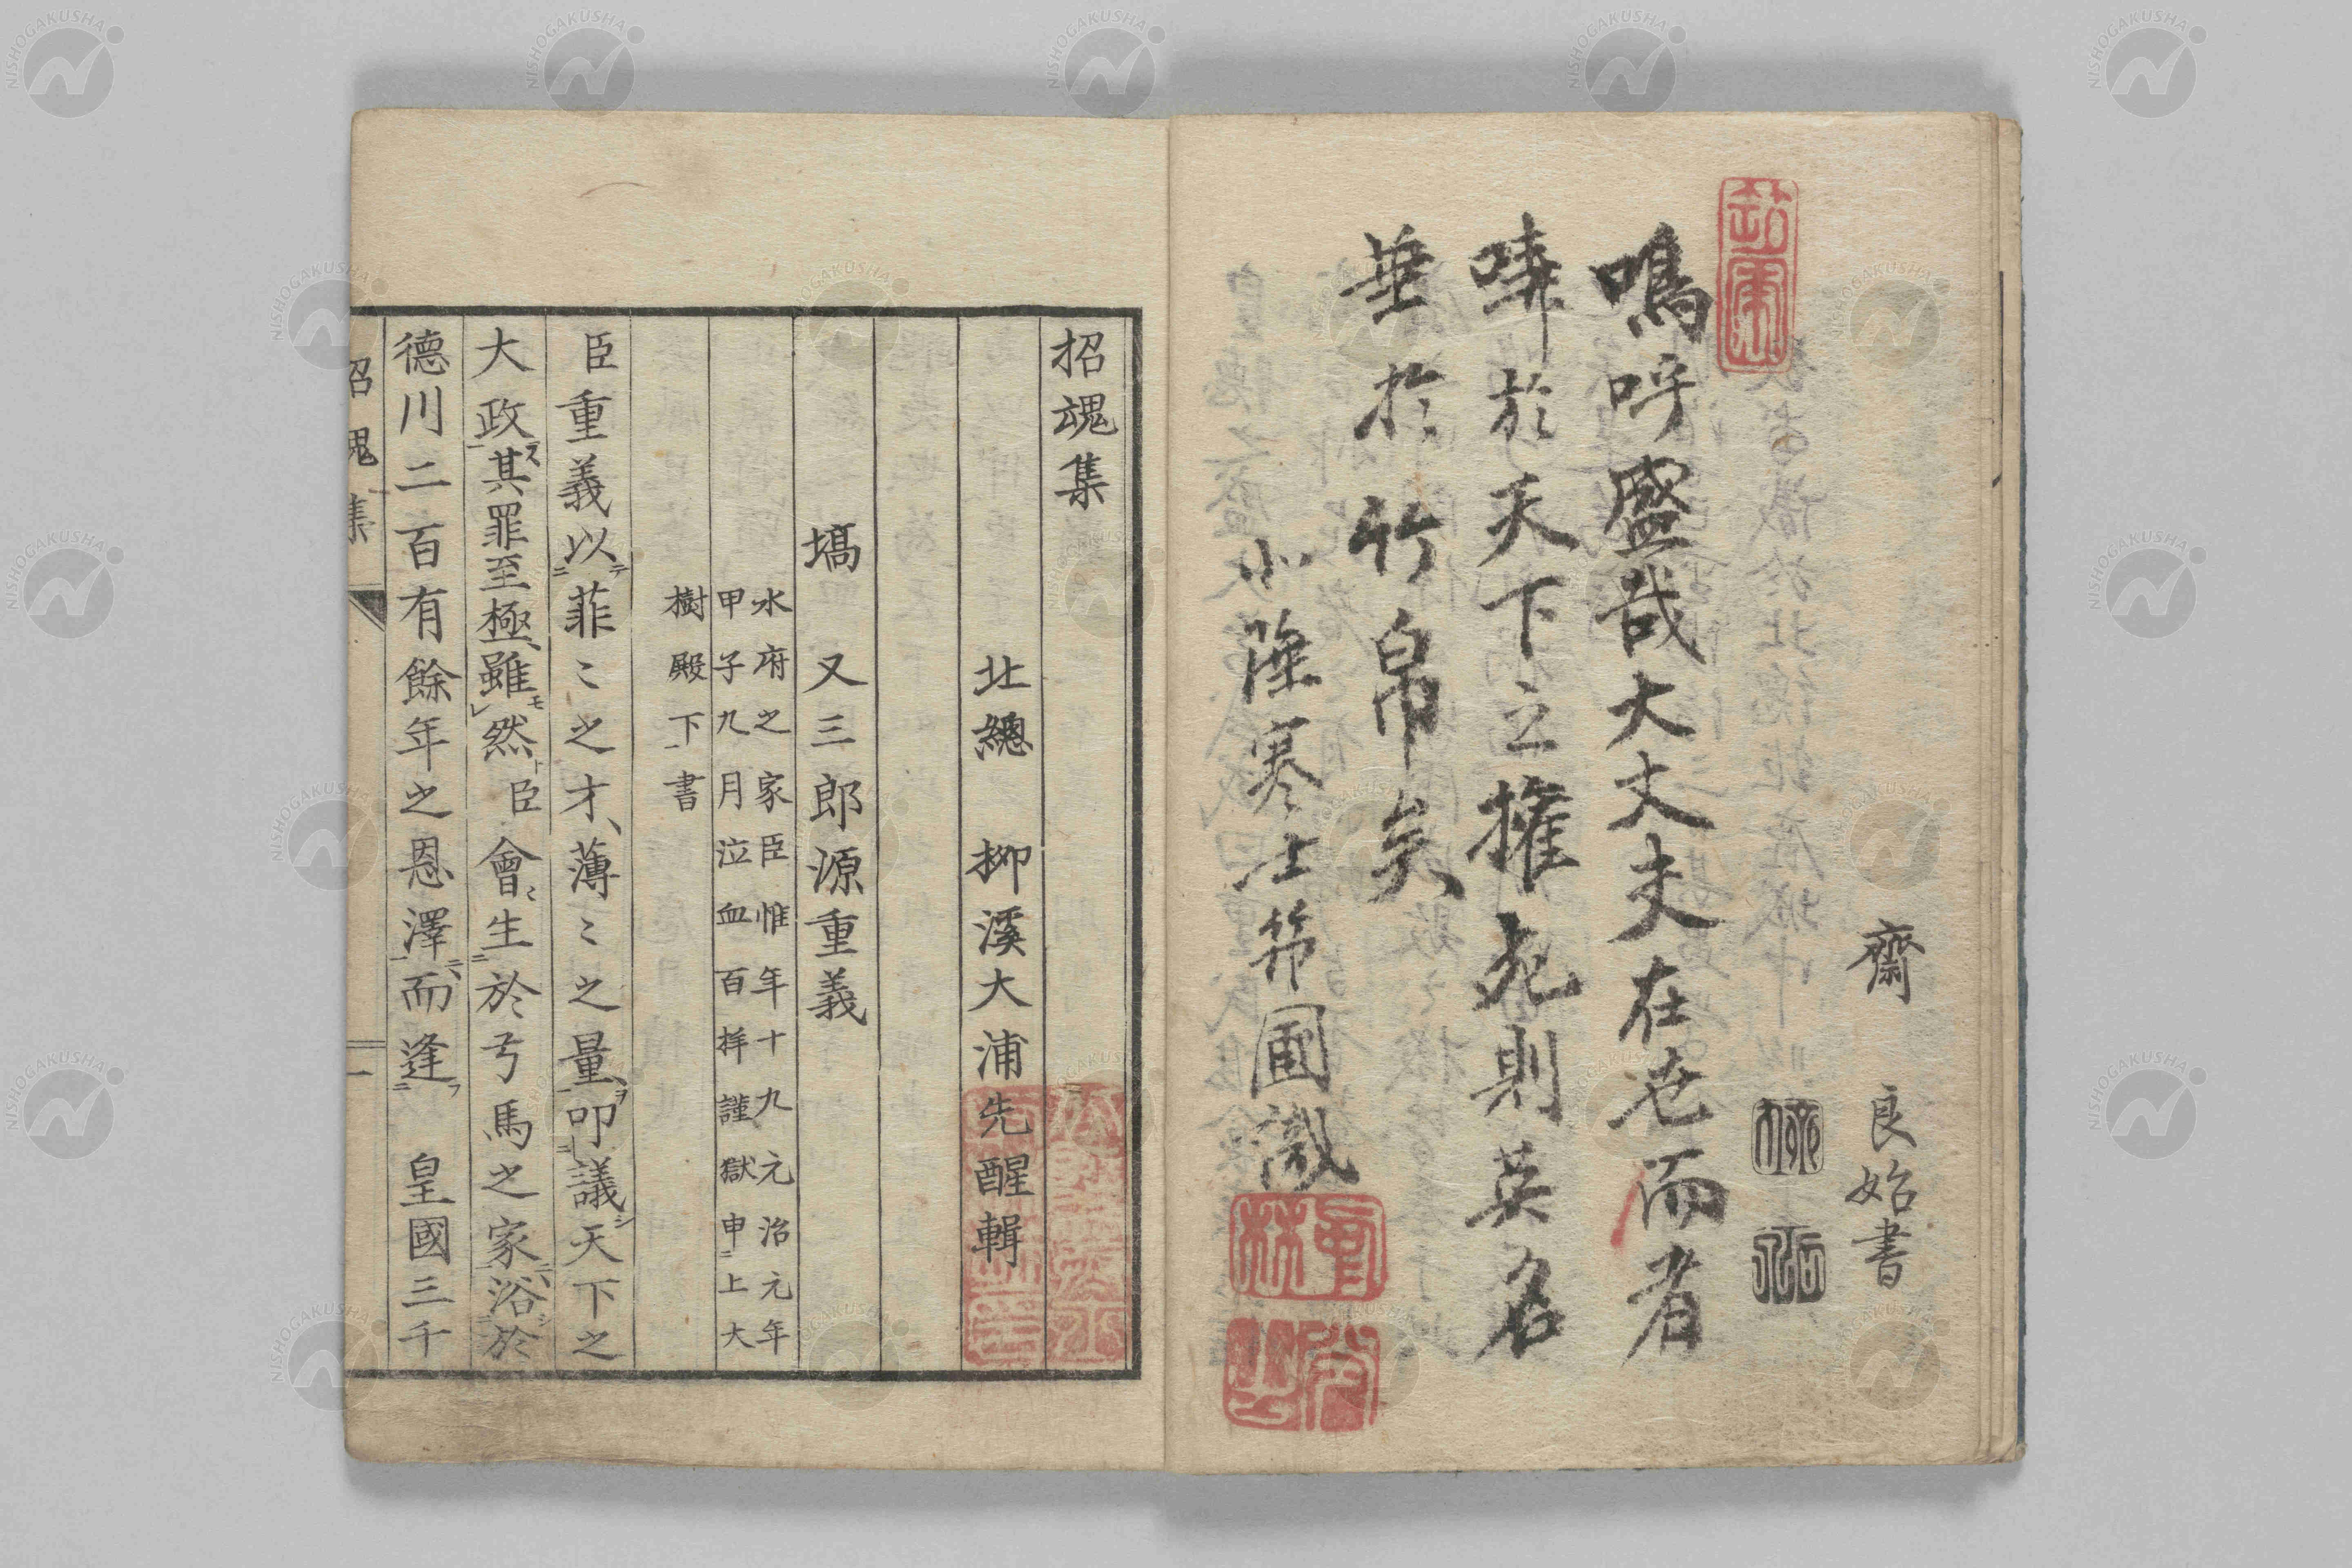 齋 良始書
嗚呼盛哉大丈夫在世而者
嘩於天下之権死則英名
垂於竹帛矣
招魂集
北總 柳溪大浦先醒輯
塙 又三郎源重義
水府之家臣惟年十九元治元年
甲子九月泣血百拜謹獄申ニ上大
樹殿下一書
臣重義以テ菲〻之才、薄〻之量ヲ叩議シ天下之
大政ス其罪至極、雖モ然ト臣會〻生於弓馬之家浴シ於
德川二百有餘年之恩澤ニ而逢フ 皇國三千
招魂集 一
NISHOGAKUSHA